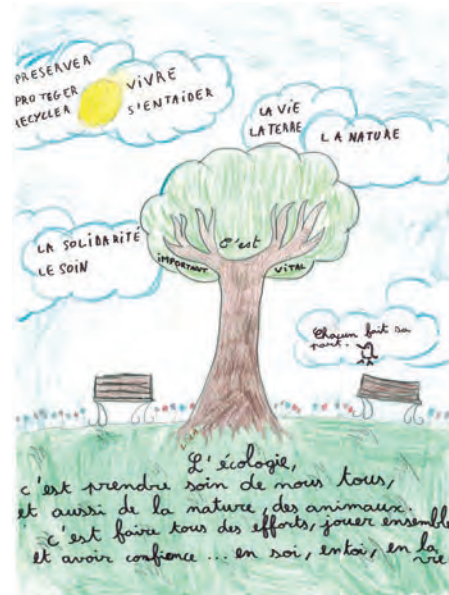 PRESERVER
PROTEGER
RECYCLER
VIVRE
S'ENTAIDER
LA VIE
LA TERRE
LA NATURE
LA SOLIDARITÉ
LE SOIN
C'est
IMPORTANT
VITAL
Chacun fait sa
part.
LISA
L'écologie,
c'est prendre soin de nous tous,
et aussi de la nature, des animaux.
c'est faire tous des efforts, jouer ensemble
et avoir confience ... en soi, entoi, en la
vie